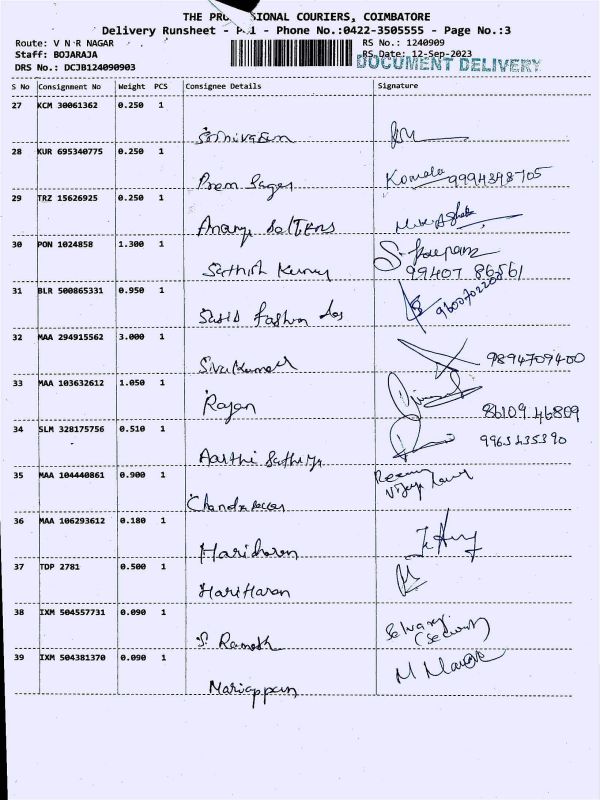 THE PROFESSIONAL COURIERS, COIMBATORE
Delivery Runsheet - P.1 - Phone No.:0422-3505555 - Page No.:3
Route: V N R NAGAR RS No.: 1240909
Staff: BOJARAJA RS Date: 12-Sep-2023
DRS No.: DCJB124090903 DOCUMENT DELIVERY
S No Consignment No Weight PCS Consignee Details Signature
27 KCM 30061362 0.250 1
28 KUR 695340775 0.250 1
Prem Sagar Komala 9994398705
29 TRZ 15626925 0.250 1
30 PON 1024858 1.300 1
Sathish Kumar 99407 86561
31 BLR 500865331 0.950 1
32 MAA 294915562 3.000 1
Sivakumar 9894709400
33 MAA 103632612 1.050 1
Rajan 86109 46809
34 SLM 328175756 0.510 1
Aarthi Sathiya 9963435390
35 MAA 104440861 0.900 1
36 MAA 106293612 0.180 1
Hariharan
37 TDP 2781 0.500 1
HariHaran
38 IXM 504557731 0.090 1
S. Ramesh Selvaraj
(Security)
39 IXM 504381370 0.090 1
Mariappan